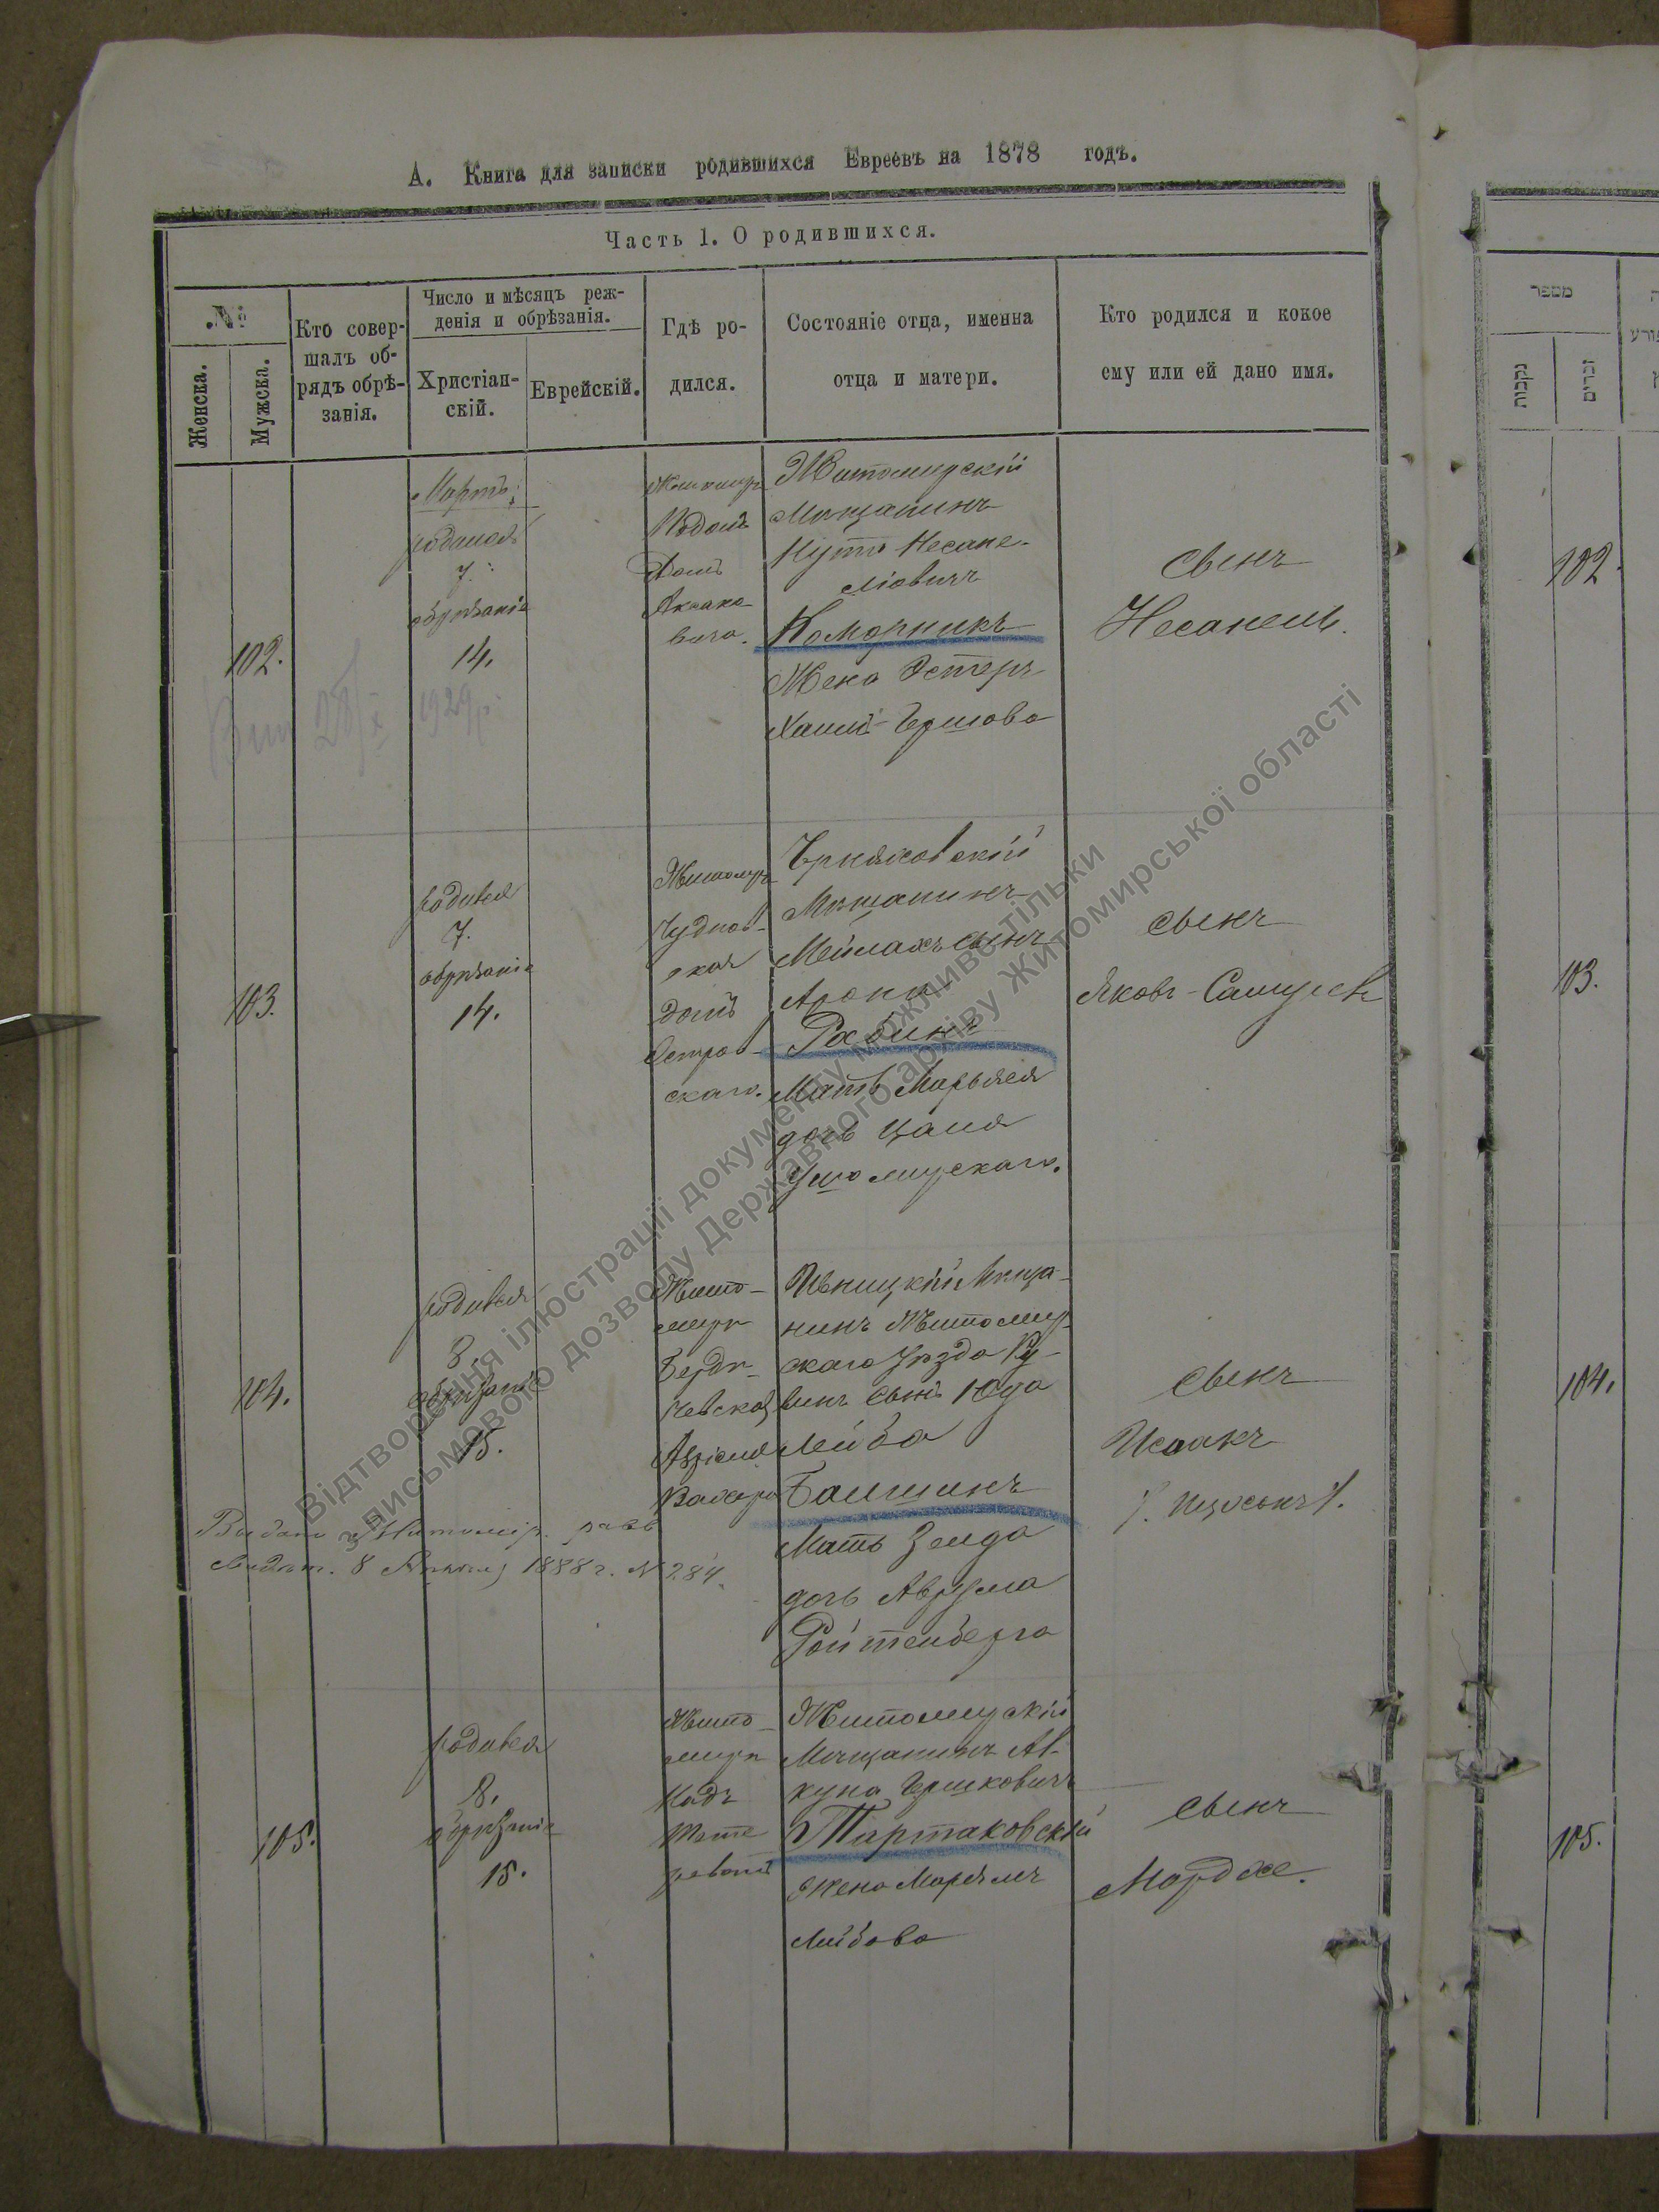 А. Книга для записки родившихся Евреевъ на 1878 годъ.
Часть 1. О родившихся.
№
Женска.
Мужска.
Кто совер-
шалъ об-
рядъ обрѣ-
занія.
Число и мѣсяцъ реж-
денія и обрѣзанія.
Христіан-
скій.
Еврейскій.
Гдѣ ро-
дился.
Состояніе отца, именна
отца и матери.
Кто родился и кокое
ему или ей дано имя.
102.
Мартъ
родился
7.
обрѣзаніе
14.
Житомиръ
Подолъ
Домъ
Житомирскій
Мѣщанинъ
Нута Несане-
ліовичъ
Коморникъ
Жена Эстеръ
Хаимъ-Гершова
сынъ
Несанель.
1929р.
103.
родился
7.
обрѣзаніе
14.
Житомиръ
Чуднов-
ская
домъ
Остров-
скаго.
Черняховскій
Мѣщанинъ
Мейлахъ сынъ
Арона
Рабинъ
Мать Марьяся
дочь Цаля
Ушомирскаго.
сынъ
Яковъ-Самуель
104.
родился
8
обрѣзаніе
15.
Жито-
миръ
Берди-
чевской
Мѣща-
нинъ Житомир-
скаго Уѣзда Ру-
винъ сынъ Юда
Лейба
Баишинъ
Мать Зелда
дочь Аврума
Ройтенберга
сынъ
Исаакъ
8 1888 г. № 284.
105.
родился
8.
обрѣзаніе
15.
Жито-
миръ
Надъ
Тете
ревомъ
Житомирскій
Мѣщанинъ Ав-
куна Гершковичъ
Тартаковскій
Жена Марьямъ
Лейбова
сынъ
Мордхе.
מספר
נקבות
זכרים
102.
103.
104.
105.
Відтворення ілюстрації документу можливе тільки
з письмового дозволу Державного архіву Житомирської області